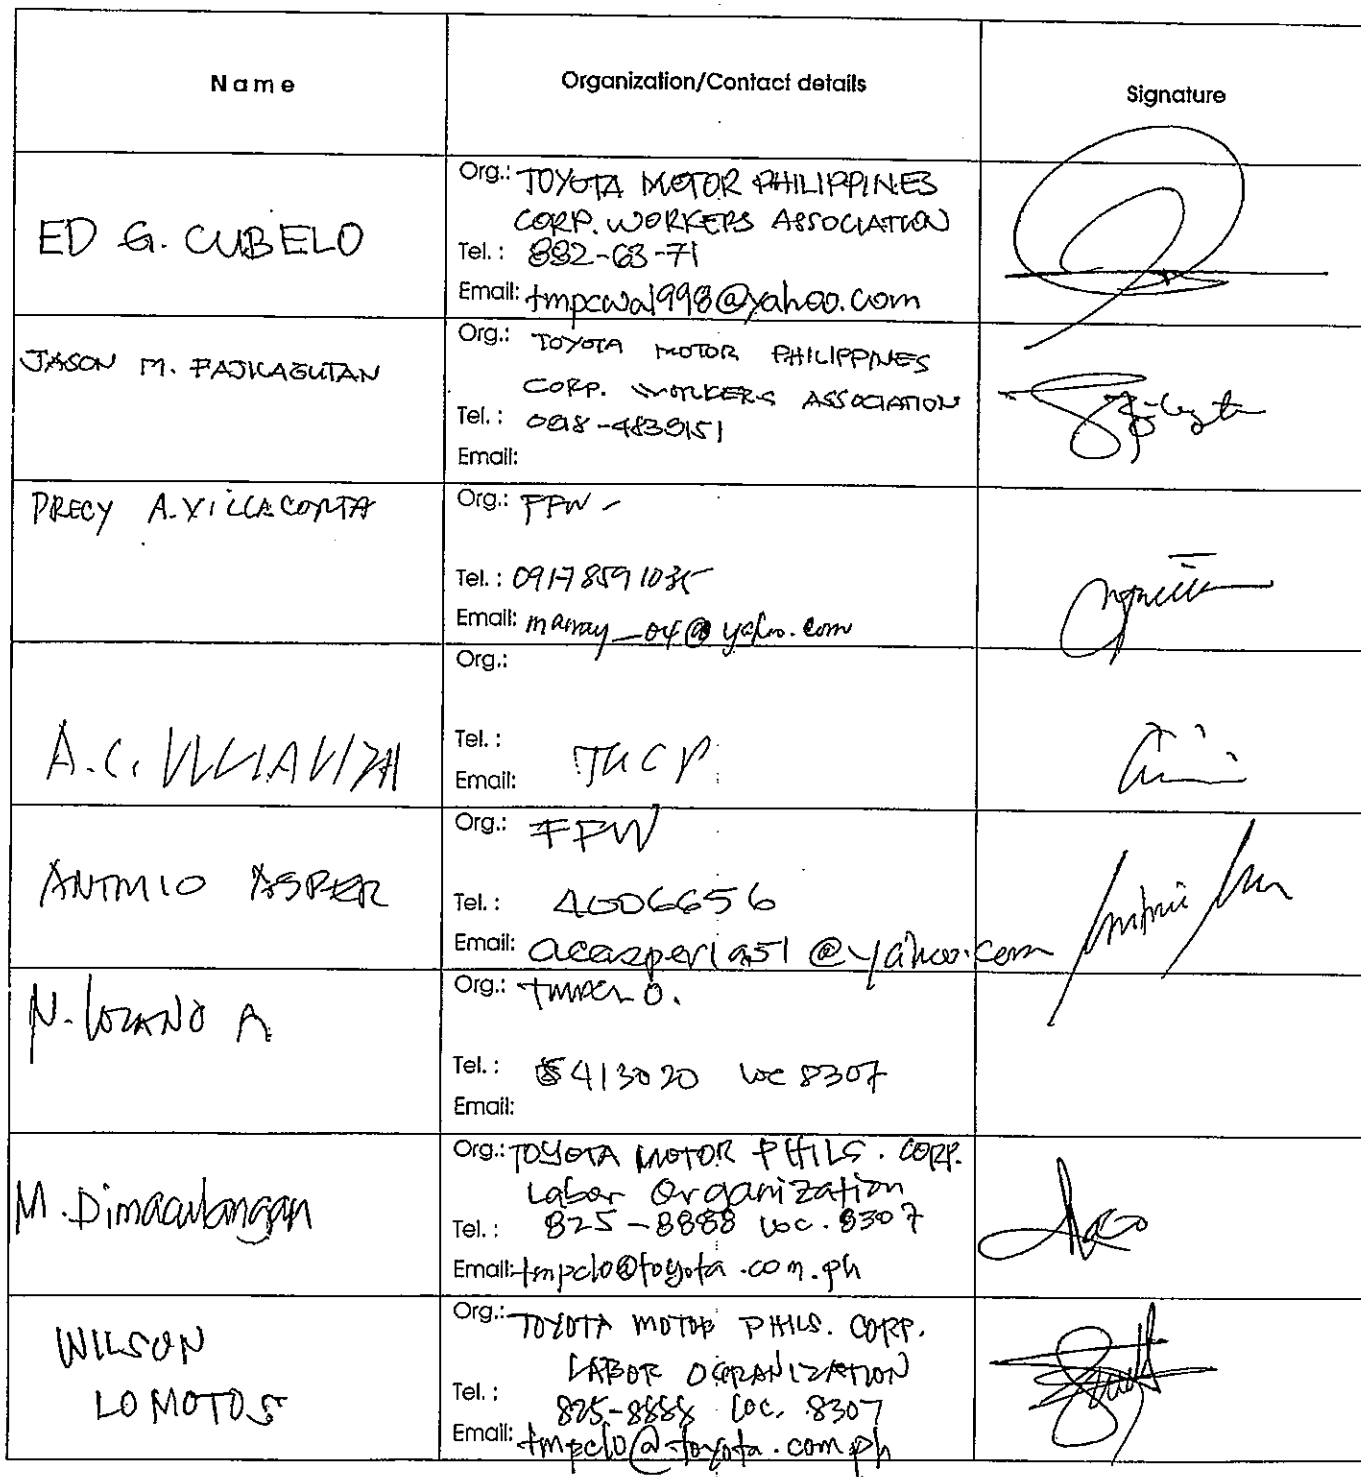 Name Organization/Contact details Signature
ED G. CUBELO
Org.: TOYOTA MOTOR PHILIPPINES
CORP. WORKERS ASSOCIATION
Tel.: 882-63-71
Email: tmpcwa1998@yahoo.com
JASON M. FAJILAGUTAN
Org.: TOYOTA MOTOR PHILIPPINES
CORP. WORKERS ASSOCIATION
Tel.:
Email:
PRECY A. VILLACORTA
Org.: FFW -
Tel.: 09178591035
Email:
A.C. VILLAVIZA
Org.:
Tel.: TUCP
Email:
ANTONIO ASPER
Org.: FFW
Tel.: 4006656
Email:
N. LOZANO A
Org.:
Tel.: 8413020 loc 8307
Email:
M. Dimaculangan
Org.: TOYOTA MOTOR PHILS. CORP.
Labor Organization
Tel.: 825-8888 loc. 8307
Email: tmpclo@toyota.com.ph
WILSON
LOMOTOS
Org.: TOYOTA MOTOR PHILS. CORP.
LABOR OGRANIZATION
Tel.: 825-8888 loc. 8307
Email: tmpclo@toyota.com.ph